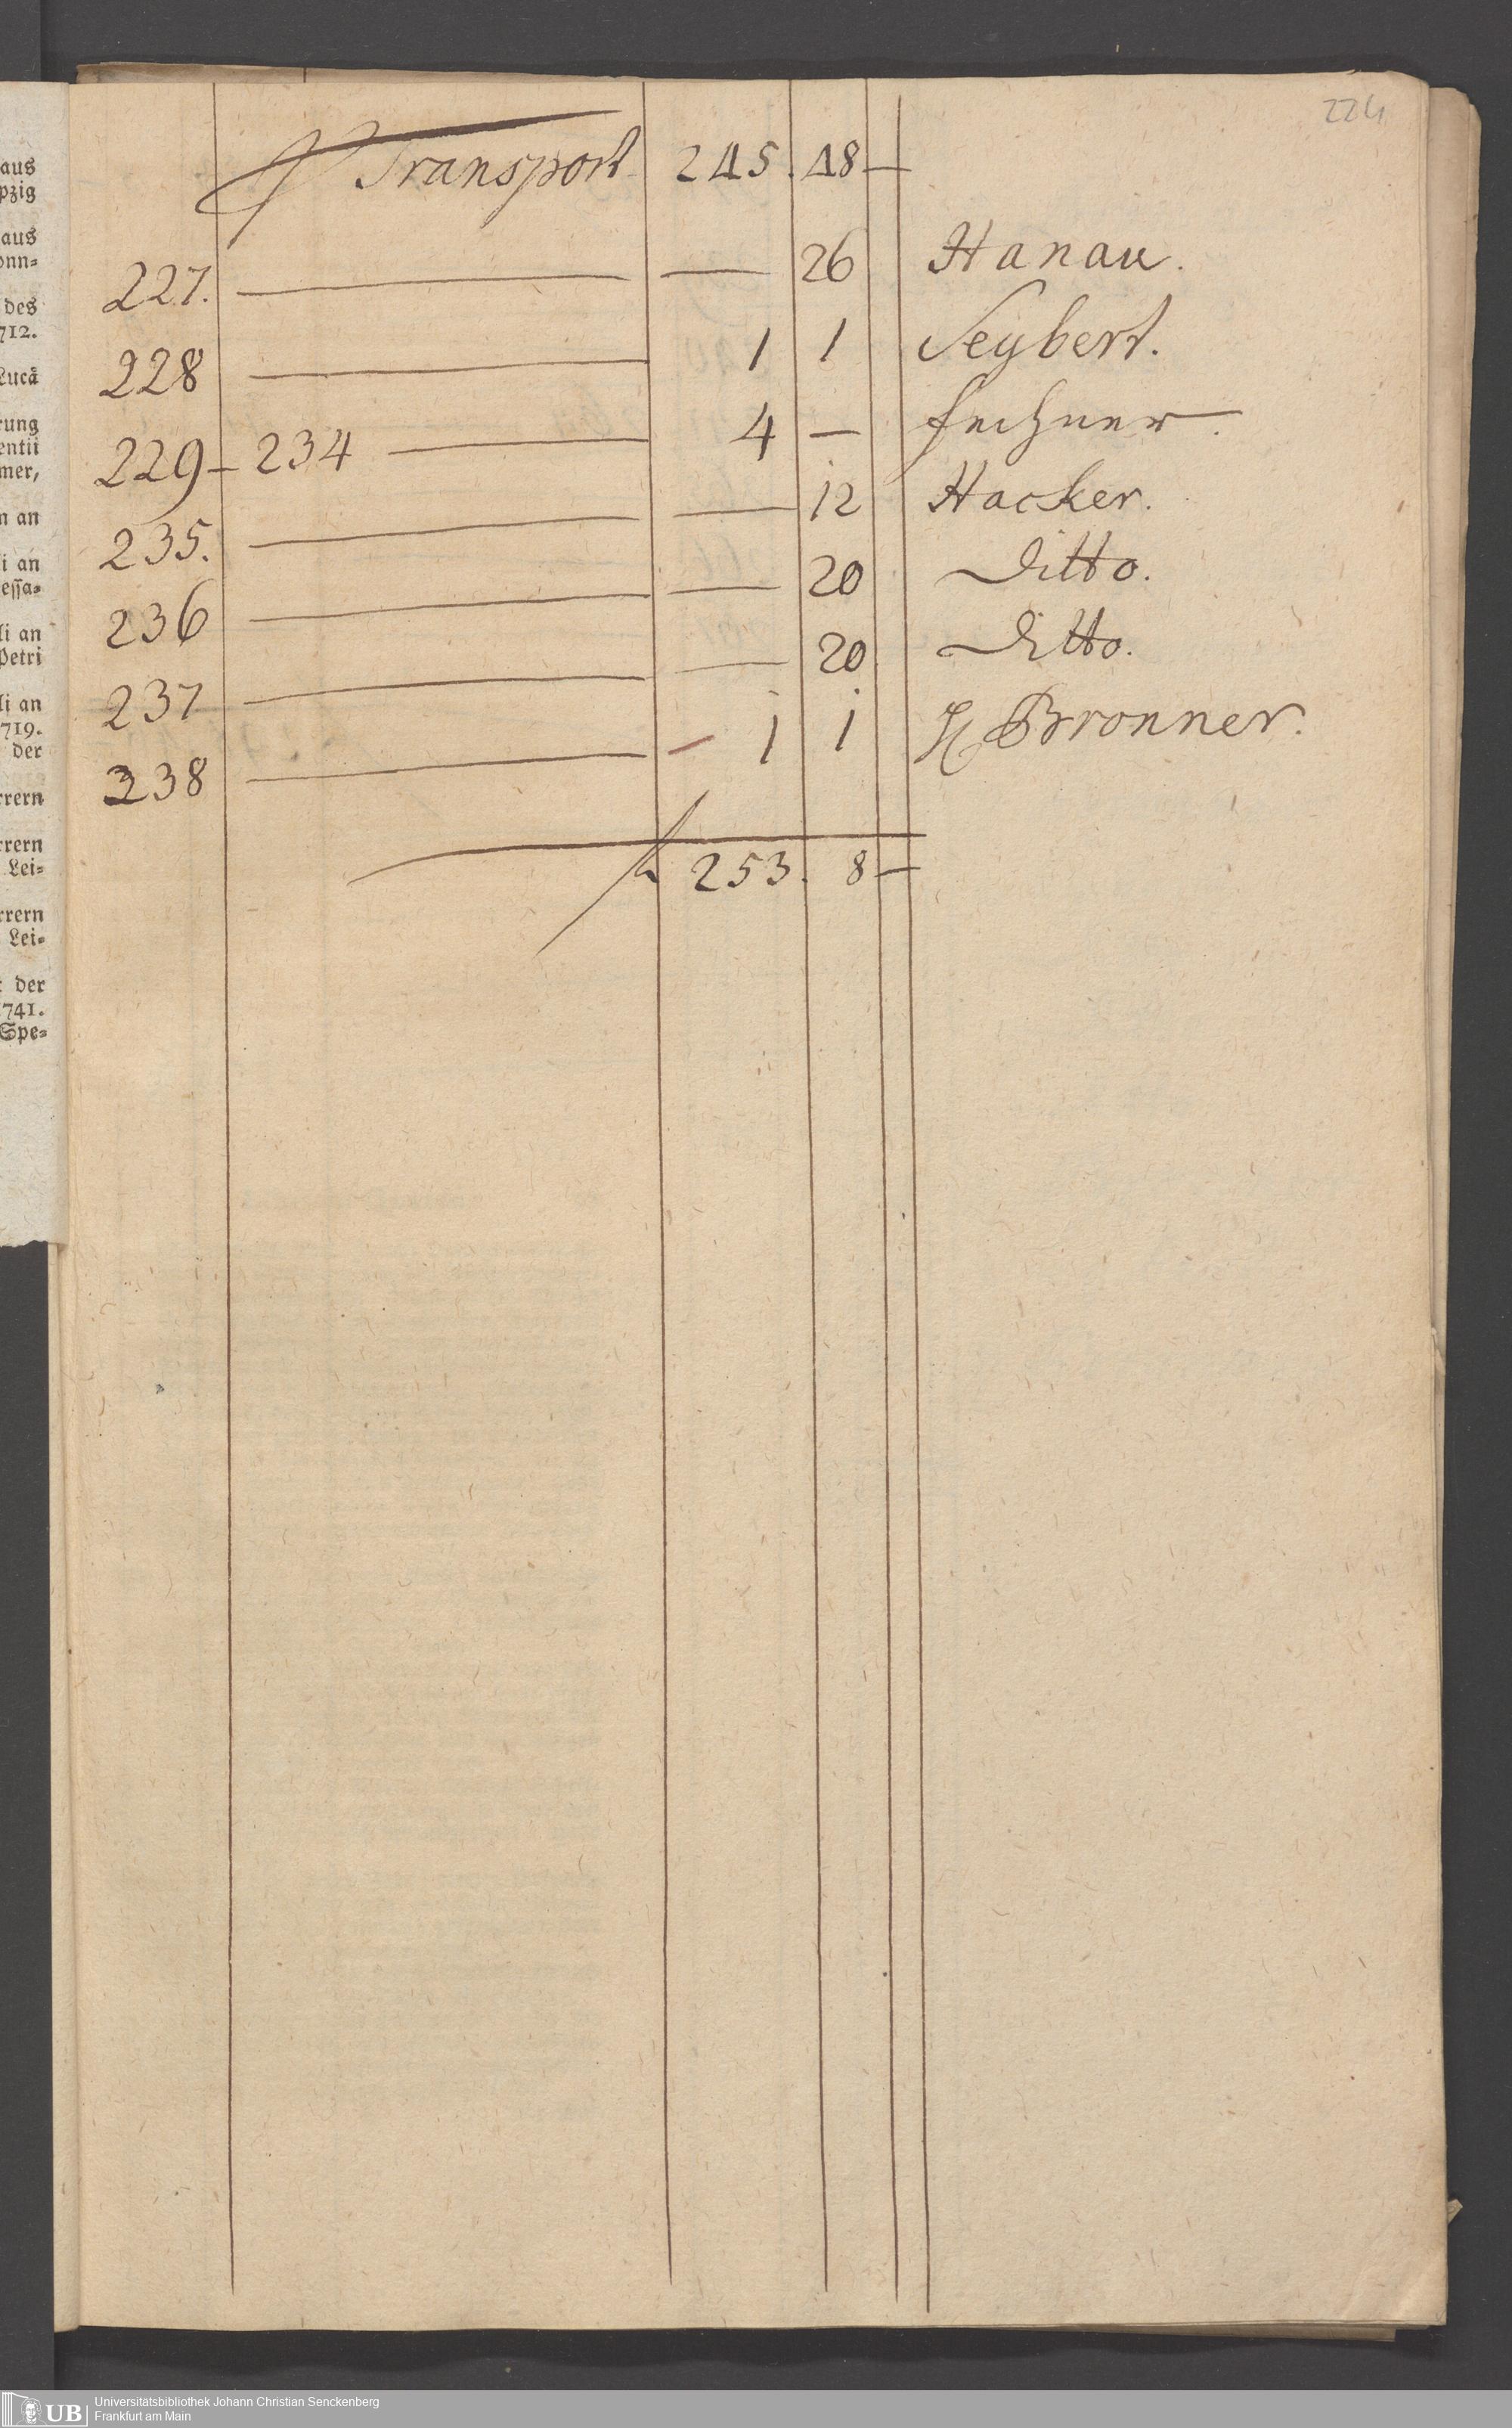 aus
pzig
aus
onn=
des
712.
Lucä
rung
entii
mer,
n an
i an
essa=
li an
Petri
li an
719.
der
rrern
rrern
Lei=
rrern
Lei=
der
741.
Spe=
224
Transport 245. 48 —
227. — — 26 Hanau.
228 — 1 1 Seybert.
229 – 234 — 4 — Fechner.
235. — — 12 Hacker.
236 — — 20 Ditto.
237 — — 20 Ditto.
238 — – 1 1 H Bronner.
f 253. 8 —
UB
Universitätsbibliothek Johann Christian Senckenberg
Frankfurt am Main